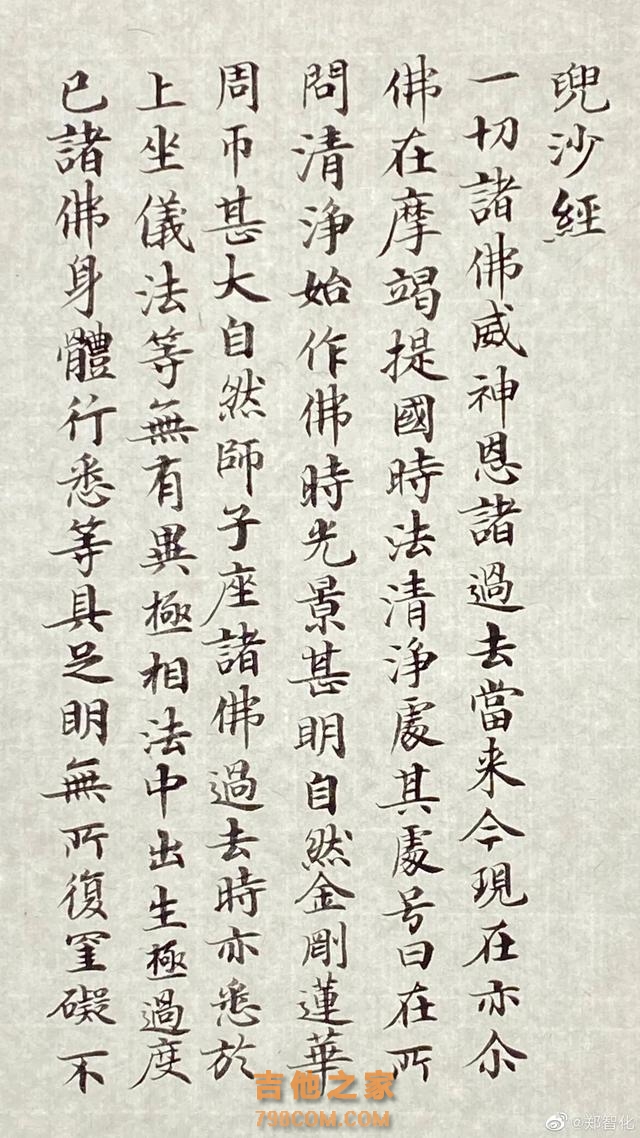 兜沙經
一切諸佛威神恩諸過去當来今現在亦尒
佛在摩竭提國時法清淨處其處号曰在所
問清淨始作佛時光景甚明自然金剛蓮華
周帀甚大自然師子座諸佛過去時亦悉於
上坐儀法等無有異極相法中出生極過度
已諸佛身體行悉等具足明無所復罣礙不
吉他之家
798COM.COM
@郑智化